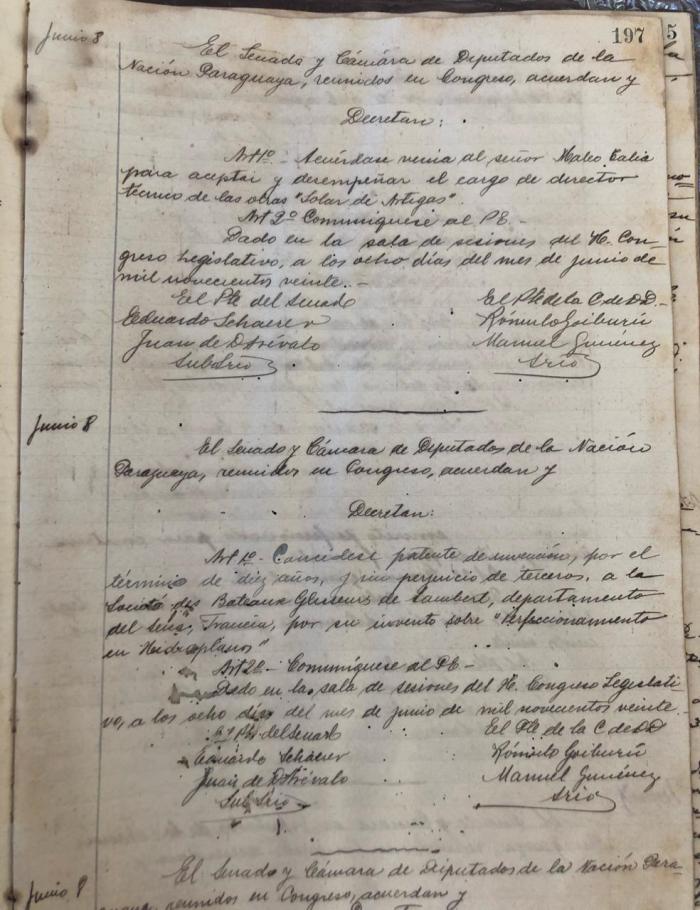 197
5
Junio 8
El Senado y Cámara de Diputados de la
Nación Paraguaya, reunidos en Congreso, acuerdan y
Decretan:
Art 1º - Acuérdase venia al señor Mateo Talia
para aceptar y desempeñar el cargo de director
técnico de las obras "Solar de Artigas".
Art 2º Comuníquese al PE -
Dado en la sala de sesiones del H. Con-
greso Legislativo, a los ocho días del mes de junio de
mil novecientos veinte. -
El Pte del Senado
Eduardo Schaerer
Juan de D Arévalo
SubSrio
El Pte de la C de DD -
Rómulo Goiburú
Manuel Giménez
Srio
Junio 8
El Senado y Cámara de Diputados de la Nación
Paraguaya, reunidos en Congreso, acuerdan y
Decretan:
Art 1º - Concédese patente de invención, por el
término de diez años, y sin perjuicio de terceros, a la
Société des Bateaux Glisseurs de Lambert, departamento
del Sena, Francia, por su invento sobre "Perfeccionamiento
en Hidroplanos"
Art 2º - Comuníquese al PE -
Dado en la sala de sesiones del H. Congreso Legislati-
vo, a los ocho días del mes de junio de mil novecientos veinte
El Pte del Senado
Eduardo Schaerer
Juan de D Arévalo
SubSrio
El Pte de la C de DD
Rómulo Goiburú
Manuel Giménez
Srio
Junio 8
El Senado y Cámara de Diputados de la Nación Para-
guaya, reunidos en Congreso, acuerdan y